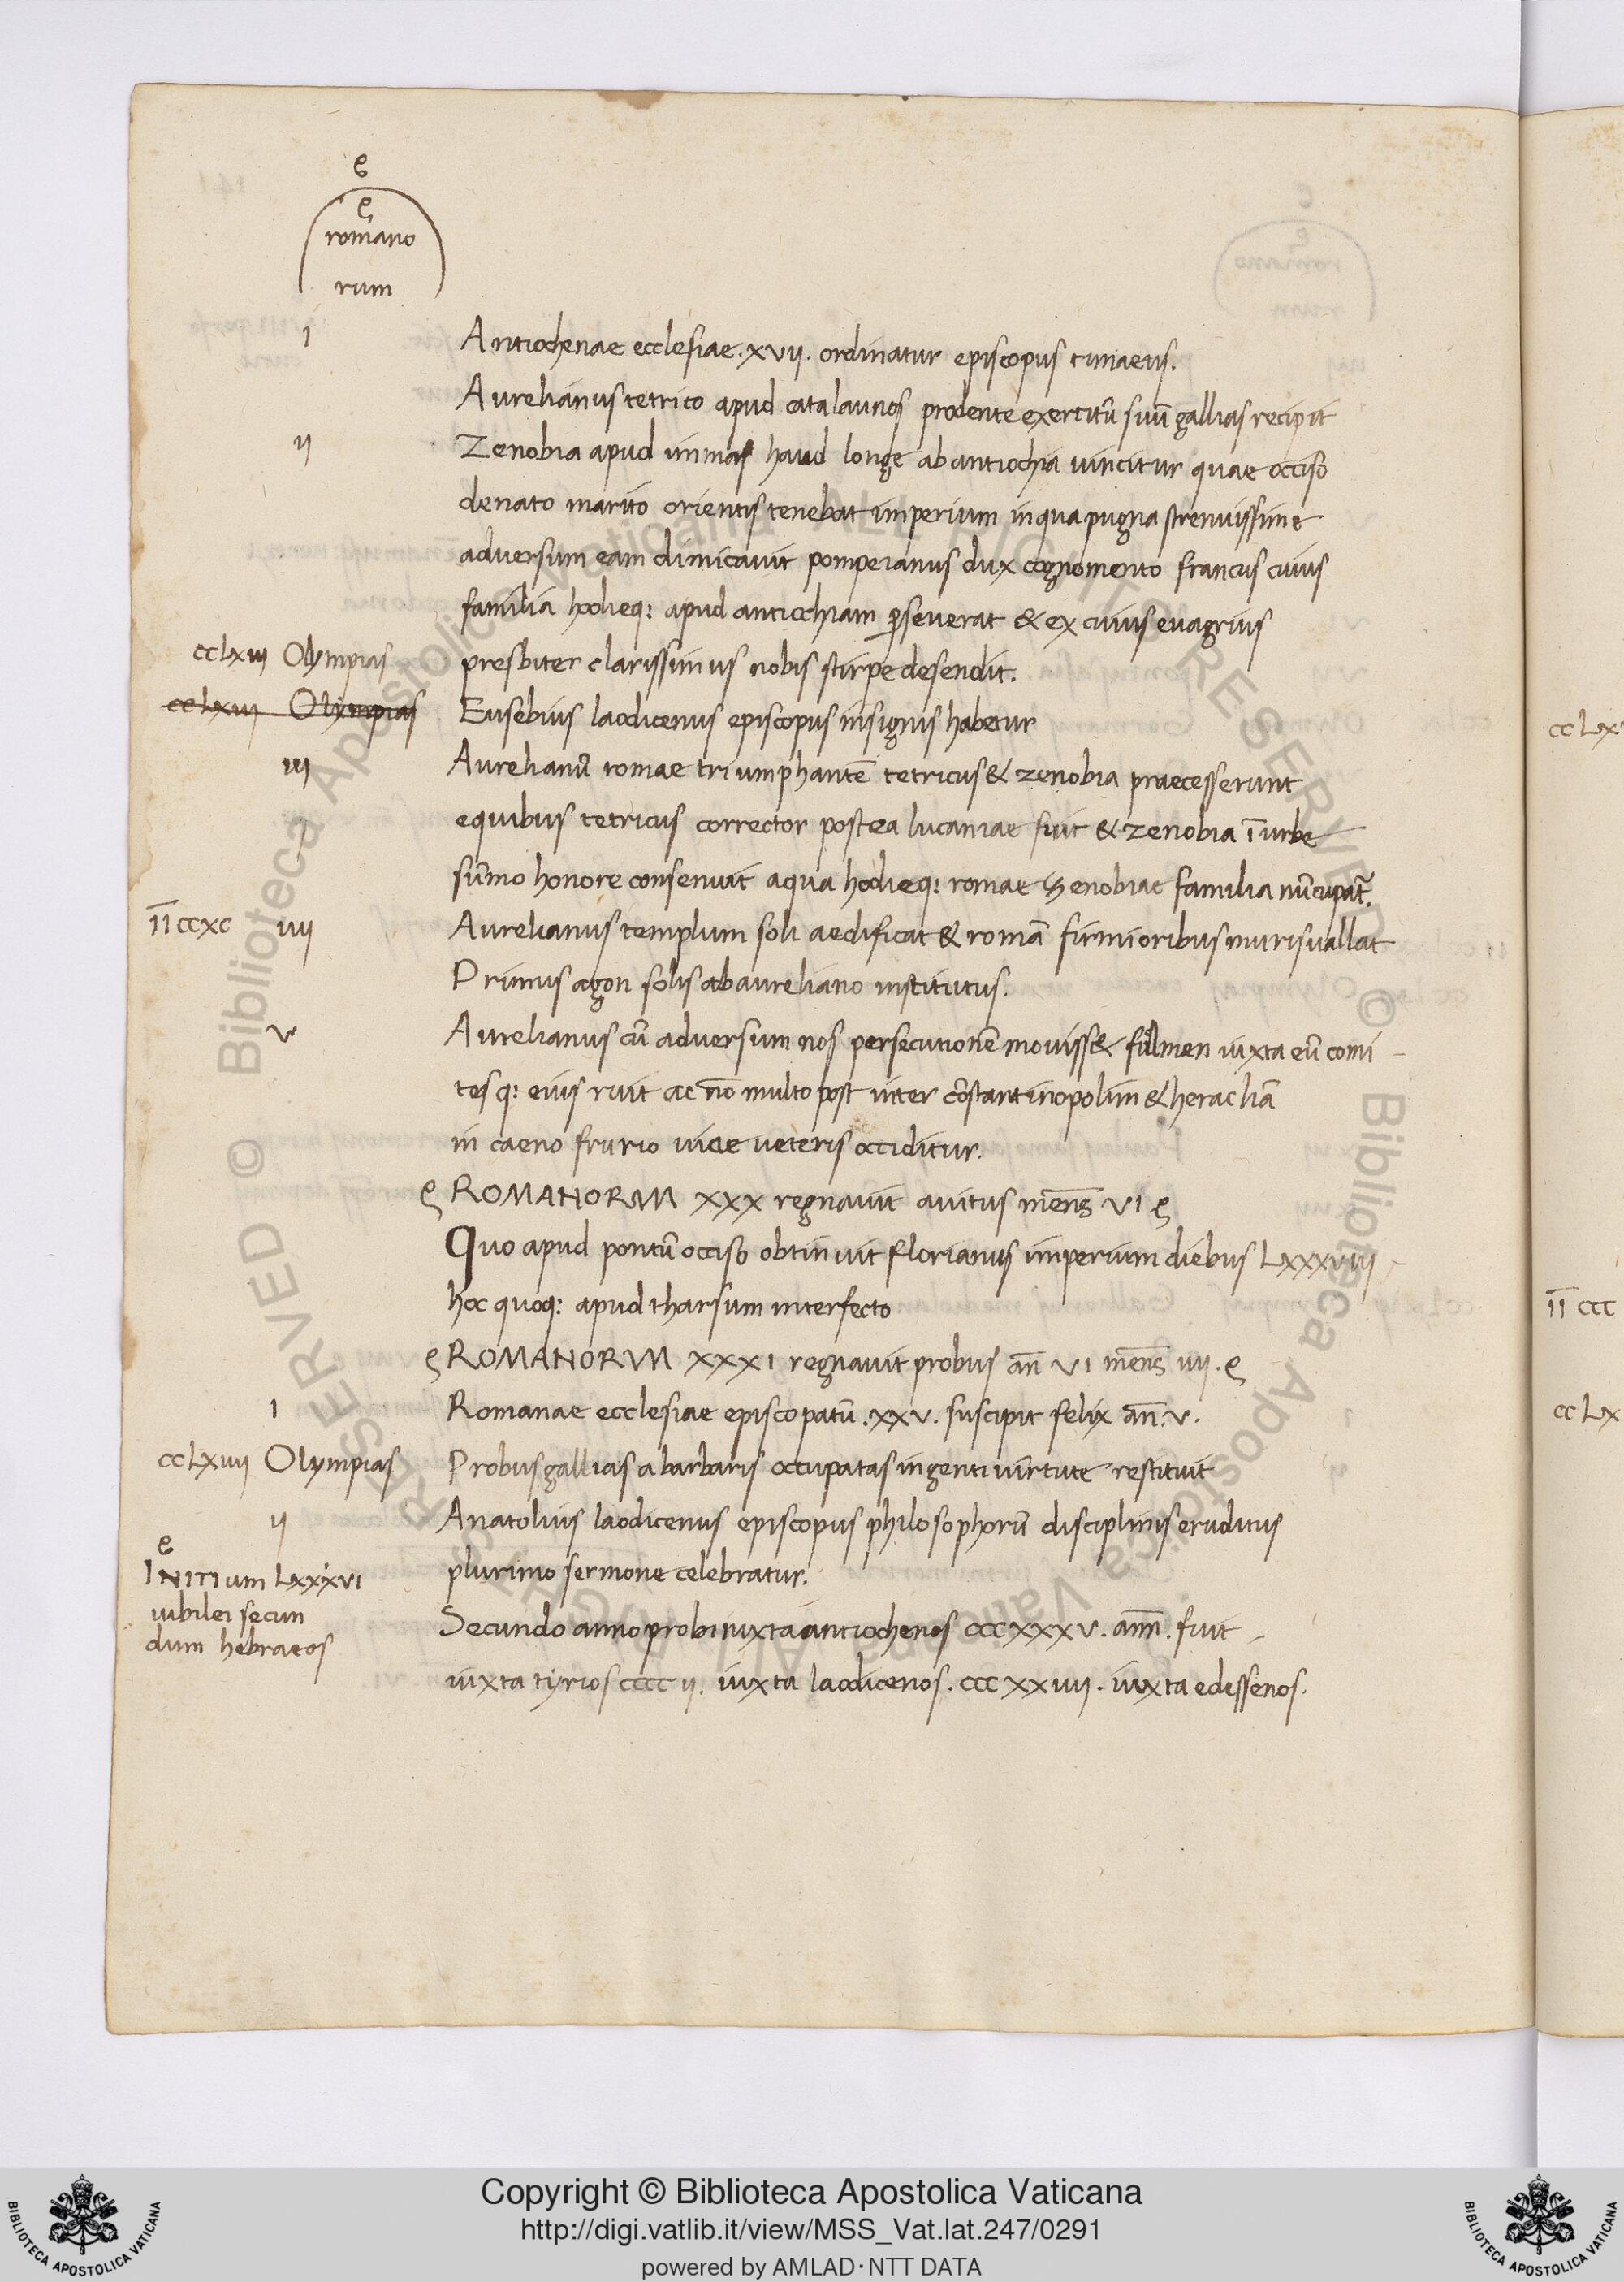 romano
rum
i Antiochenae ecclesiae . xvii . ordinatur episcopus timaeus.
Aurelianus tetrico apud catalaunos prodente exercitū suū gallias recipit
ii Zenobia apud immas haud longe ab antiochia uincitur quae occiso
denato marito orientis tenebat imperium in qua pugna strenuissime
adversum eam dimicauit pompeianus dux cognomento francus cuius
familia hodieq: apud antiochiam ꝑseuerat & ex cuius euagrius
cclxiii Olympias presbiter clarissimus nobis stirpe desendit.
cclxiii Olympias Eusebius laodicenus episcopus insignis habetur
iii Aurelianū romae triumphantē tetricus & zenobia praecesserunt
equibus tetricus corrector postea lucaniae fuit & zenobia ī urbe
sūmo honore consenuit aqua hodieq: romae zenobiae familia nūcupat̄.
īīccxc iiii Aurelianus templum soli aedificat & romā firmioribus muris uallat
Primus agon solis ab aureliano institutus.
v Aurelianus cū adversum nos persecutionē mouiss& fulmen iuxta eū comi
tesq: eius ruit ac nō multo post inter cōstantinopolim & heracliā
in caeno frurio uiae veteris occiditur.
ROMANORUM XXX regnavit avitus mens̄ VI
Quo apud pontū occiso obtinuit florianus imperium diebus Lxxxviii
hoc quoq: apud tharsum interfecto
ROMANORUM XXXI regnauit probus an̄ VI mens̄ iiii .
I Romanae ecclesiae episcopatū . xxv . suscipit felix an̄ . v .
ccLxiiii Olympias Probus gallias a barbaris occupatas ingenti uirtute restituit
ii Anatolius laodicenus episcopus philosophorū disciplinis eruditus
INITIum Lxxxvi plurimo sermone celebratur.
iubilei secun
dum hebraeos
Secundo anno probi iuxta antiochenos cccxxxv . ann̄ . fuit
iuxta tyrios cccc ii . iuxta laodicenos . cccxxiiii . iuxta edessenos .
īī ccc
Copyright © Biblioteca Apostolica Vaticana
http://digi.vatlib.it/view/MSS_Vat.lat.247/0291
powered by AMLAD·NTT DATA
BIBLIOTECA APOSTOLICA VATICANA
BIBLIOTECA APOSTOLICA VATICANA